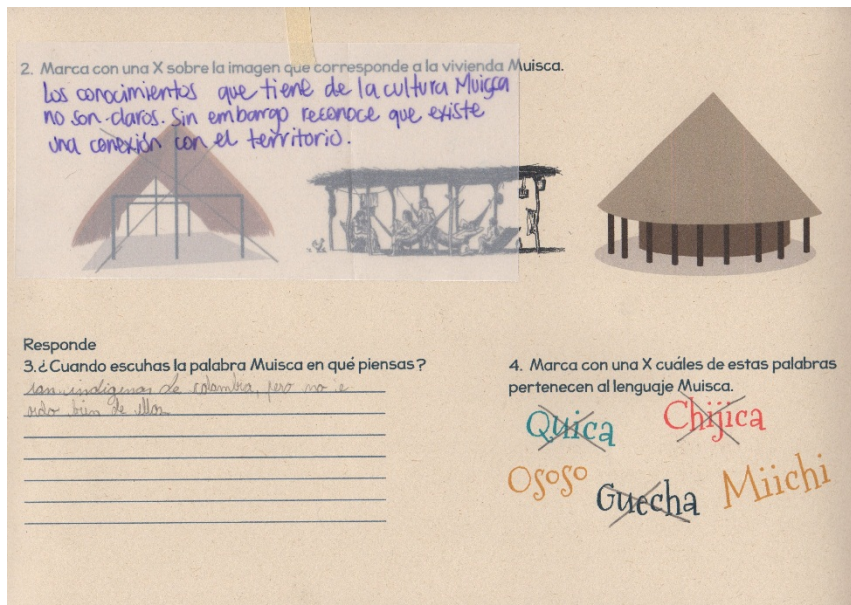 2. Marca con una X sobre la imagen que corresponde a la vivienda Muisca.
Los conocimientos que tiene de la cultura Muisca
no son claros. Sin embargo reconoce que existe
una conexión con el territorio.
Responde
3.¿Cuando escuhas la palabra Muisca en qué piensas?
son indigenas de colombia, pero no e
oido bien de ellos
4. Marca con una X cuáles de estas palabras
pertenecen al lenguaje Muisca.
Quica Chijica
Ososo Guecha Miichi